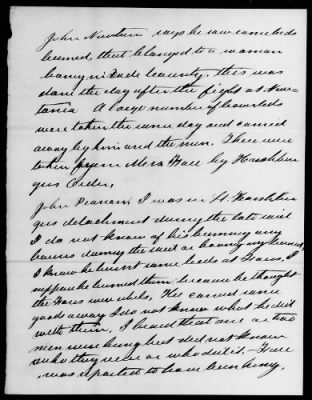 John Newton says he saw some beds
burned, that belonged to a woman
living in Dade County, this was
done the day after the fight at New-
tonia A large number of
were taken the same day and carried
away by him and the men. These were
taken from Mera Hall by
gus Order,
John Pearson, I was in Lt.
gus detachment during the late raid
I do not know of his burning any
houses during the raid or having any burned,
I know he burnt some beds at Halls, I
suppose he burned them because he thought
the Halls were rebels, He carried some
goods away I do not know what he did
with them, I heard that one or two
men were hung but did not know
who they were or who did it. Hall
was reported to have been hung,